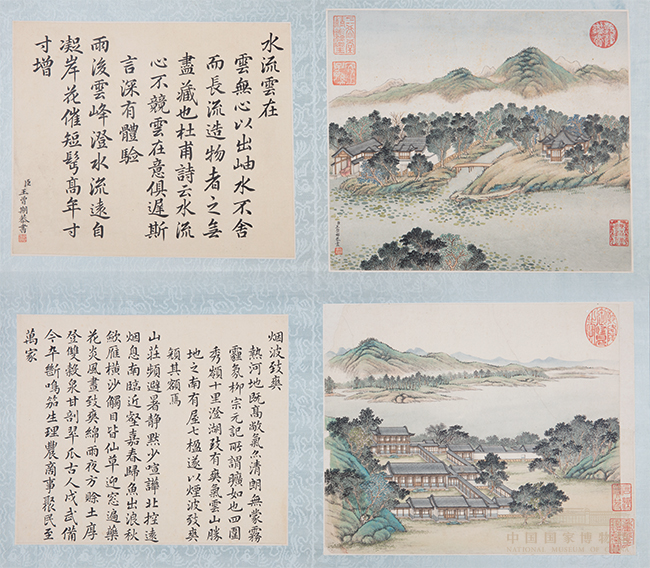 水流雲在
雲無心以出岫水不舍
而長流造物者之無
盡藏也杜甫詩云水流
心不競雲在意俱遲斯
言深有體驗
雨後雲峰澄水流遠自
凝岸花催短鬂髙年寸
寸增
臣王曾期敬書
烟波致爽
熱河地既髙敞氣亦清朗無蒙霧
霾氛柳宗元記所謂曠如也四圍
秀嶺十里澄湖致有爽氣雲山勝
地之南有屋七楹遂以煙波致爽
顏其額焉
山莊頻避暑静默少喧譁北控遠
烟息南臨近壑嘉春歸魚出浪秋
斂雁橫沙觸目皆仙草迎窓遍藥
花炎風晝致爽綿雨夜方賒土厚
登雙穀泉甘剖翠瓜古人戍武備
今卒斷鳴笳生理農商事聚民至
萬家
中国国家博物
NATIONAL MUSEUM OF C